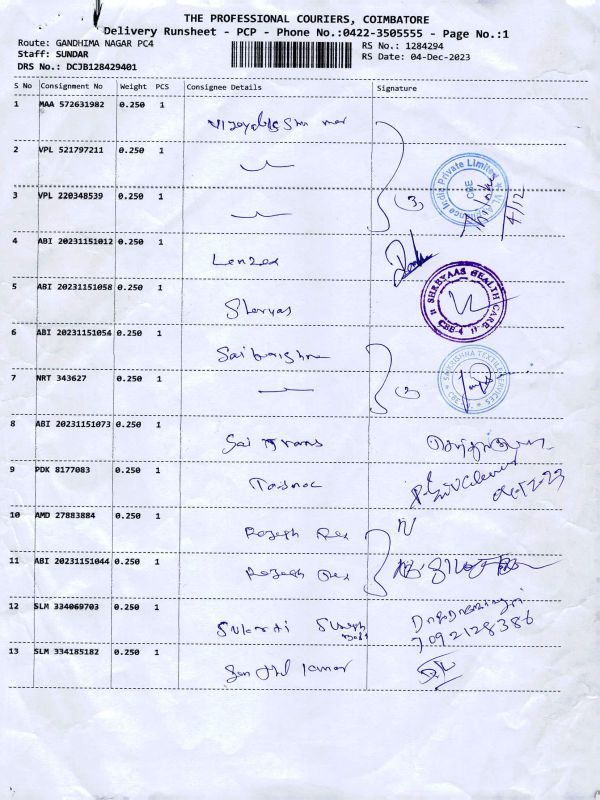 THE PROFESSIONAL COURIERS, COIMBATORE
Delivery Runsheet - PCP - Phone No.:0422-3505555 - Page No.:1
Route: GANDHIMA NAGAR PC4
RS No.: 1284294
Staff: SUNDAR
RS Date: 04-Dec-2023
DRS No.: DCJB128429401
S No Consignment No Weight PCS Consignee Details Signature
1 MAA 572631982 0.250 1
2 VPL 521797211 0.250 1
3 VPL 220348539 0.250 1
(3)
4/12
4 ABI 20231151012 0.250 1
Lenzea
SHREYAAS HEALTH CARE
CBE-4
5 ABI 20231151058 0.250 1
Shreyas
6 ABI 20231151054 0.250 1
Saikrishna
SAIKRISHNA TEXTILE SERVICES
7 NRT 343627 0.250 1
8 ABI 20231151073 0.250 1
Sai Trans
9 PDK 8177083 0.250 1
Tasmac
04-12-23
10 AMD 27883884 0.250 1
Rajesh
11 ABI 20231151044 0.250 1
Rajesh
12 SLM 334069703 0.250 1
7092128386
13 SLM 334185182 0.250 1
Senthil Kumar